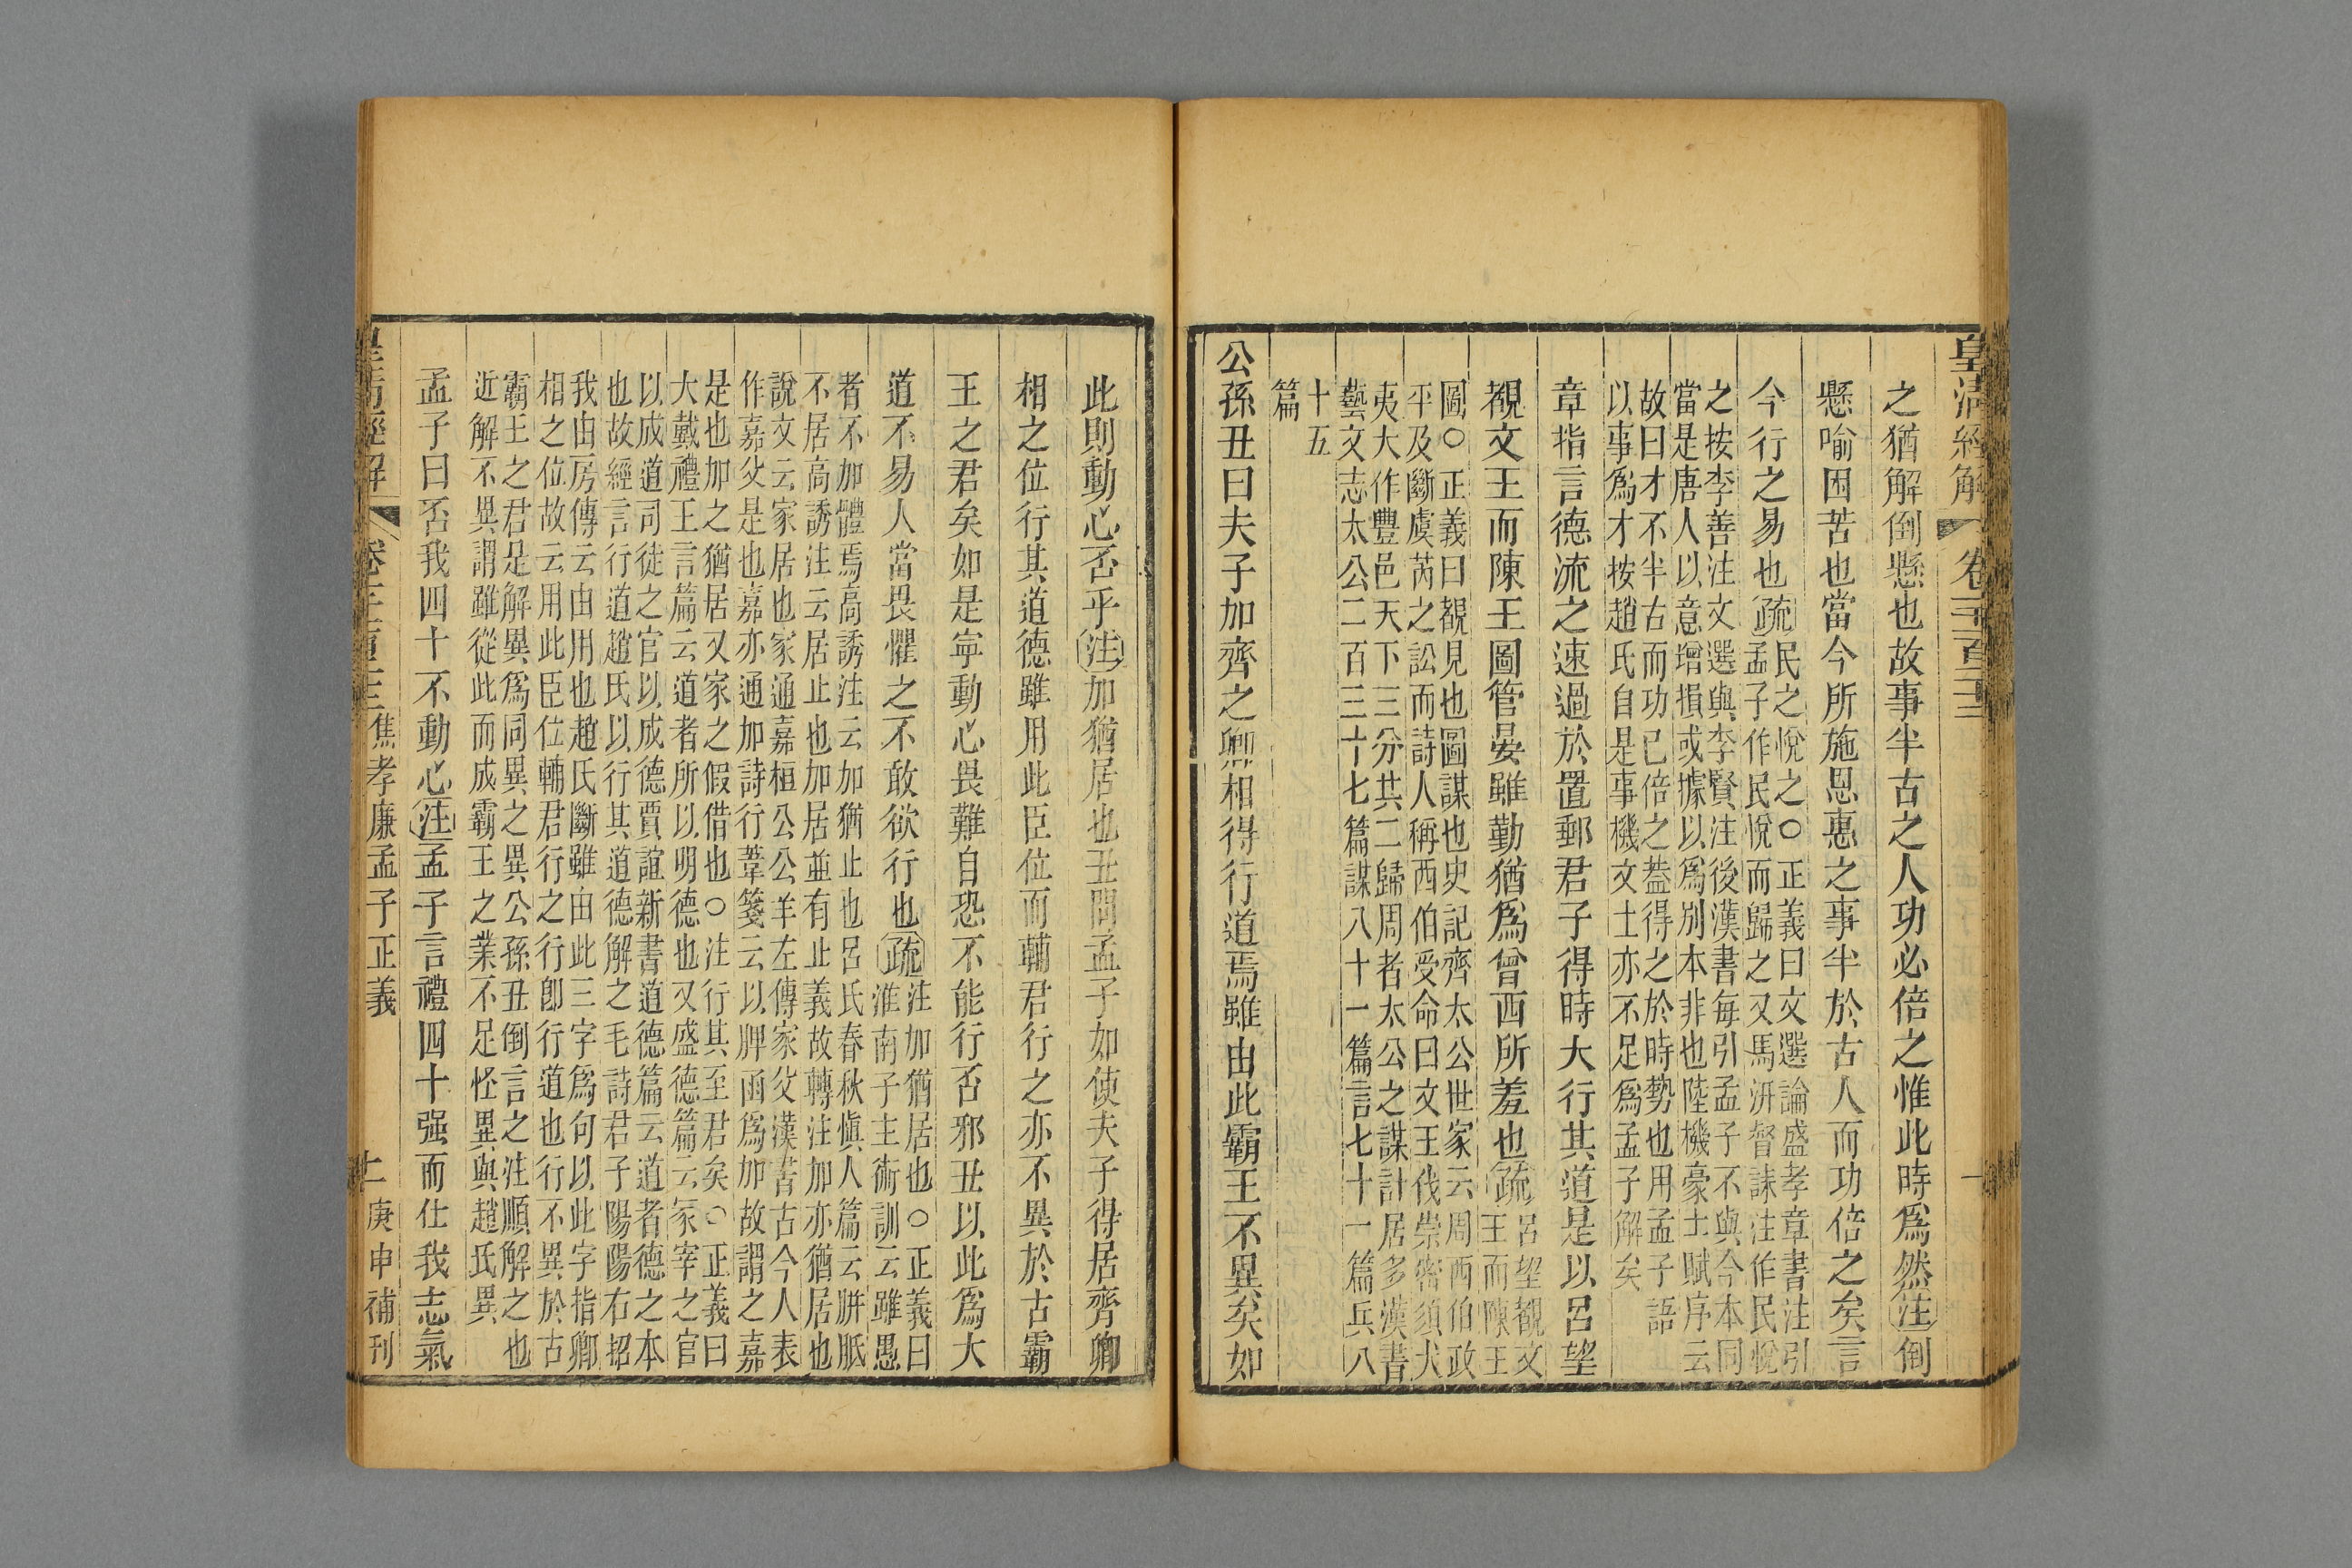 皇清經解 卷千百二十三 一
之猶解倒懸也故事半古之人功必倍之惟此時爲然注倒
懸喻困苦也當今所施恩惠之事半於古人而功倍之矣言
今行之易也疏民之悅之○正義曰文選論盛孝章書注引
孟子作民悅而歸之又馬汧督誄注作民悅
之按李善注文選與李賢注後漢書每引孟子不與今本同
當是唐人以意增損或據以爲別本非也陸機豪士賦序云
故曰才不半古而功已倍之蓋得之於時勢也用孟子語
以事爲才按趙氏自是事機文士亦不足爲孟子解矣
章指言德流之速過於置郵君子得時大行其道是以呂望
覩文王而陳王圖管晏雖勤猶爲曾西所羞也疏呂望覩文
王而陳王
圖○正義曰覩見也圖謀也史記齊太公世家云周西伯政
平及斷虞芮之訟而詩人稱西伯受命曰文王伐崇密須犬
夷大作豐邑天下三分其二歸周者太公之謀計居多漢書
藝文志太公二百三十七篇謀八十一篇言七十一篇兵八
十五
篇
公孫丑曰夫子加齊之卿相得行道焉雖由此霸王不異矣如
此則動心否乎注加猶居也丑問孟子如使夫子得居齊卿
相之位行其道德雖用此臣位而輔君行之亦不異於古霸
王之君矣如是寧動心畏難自恐不能行否邪丑以此爲大
道不易人當畏懼之不敢欲行也疏注加猶居也○正義曰
淮南子主術訓云雖愚
者不加體焉高誘注云加猶止也呂氏春秋愼人篇云胼胝
不居高誘注云居止也加居並有止義故轉注加亦猶居也
說文云家居也家通嘉桓公公羊左傳家父漢書古今人表
作嘉父是也嘉亦通加詩行葦箋云以脾函爲加故謂之嘉
是也加之猶居又家之假借也○注行其至君矣○正義曰
大戴禮王言篇云道者所以明德也又盛德篇云冢宰之官
以成道司徒之官以成德賈誼新書道德篇云道者德之本
也故經言行道趙氏以行其道德解之毛詩君子陽陽右招
我由房傳云由用也趙氏斷雖由此三字爲句以此字指卿
相之位故云用此臣位輔君行之行卽行道也行不異於古
霸王之君是解異爲同異之異公孫丑倒言之注順解之也
近解不異謂雖從此而成霸王之業不足怪異與趙氏異
孟子曰否我四十不動心注孟子言禮四十强而仕我志氣
皇淸經解 焦孝廉孟子正義 二 庚申補刊